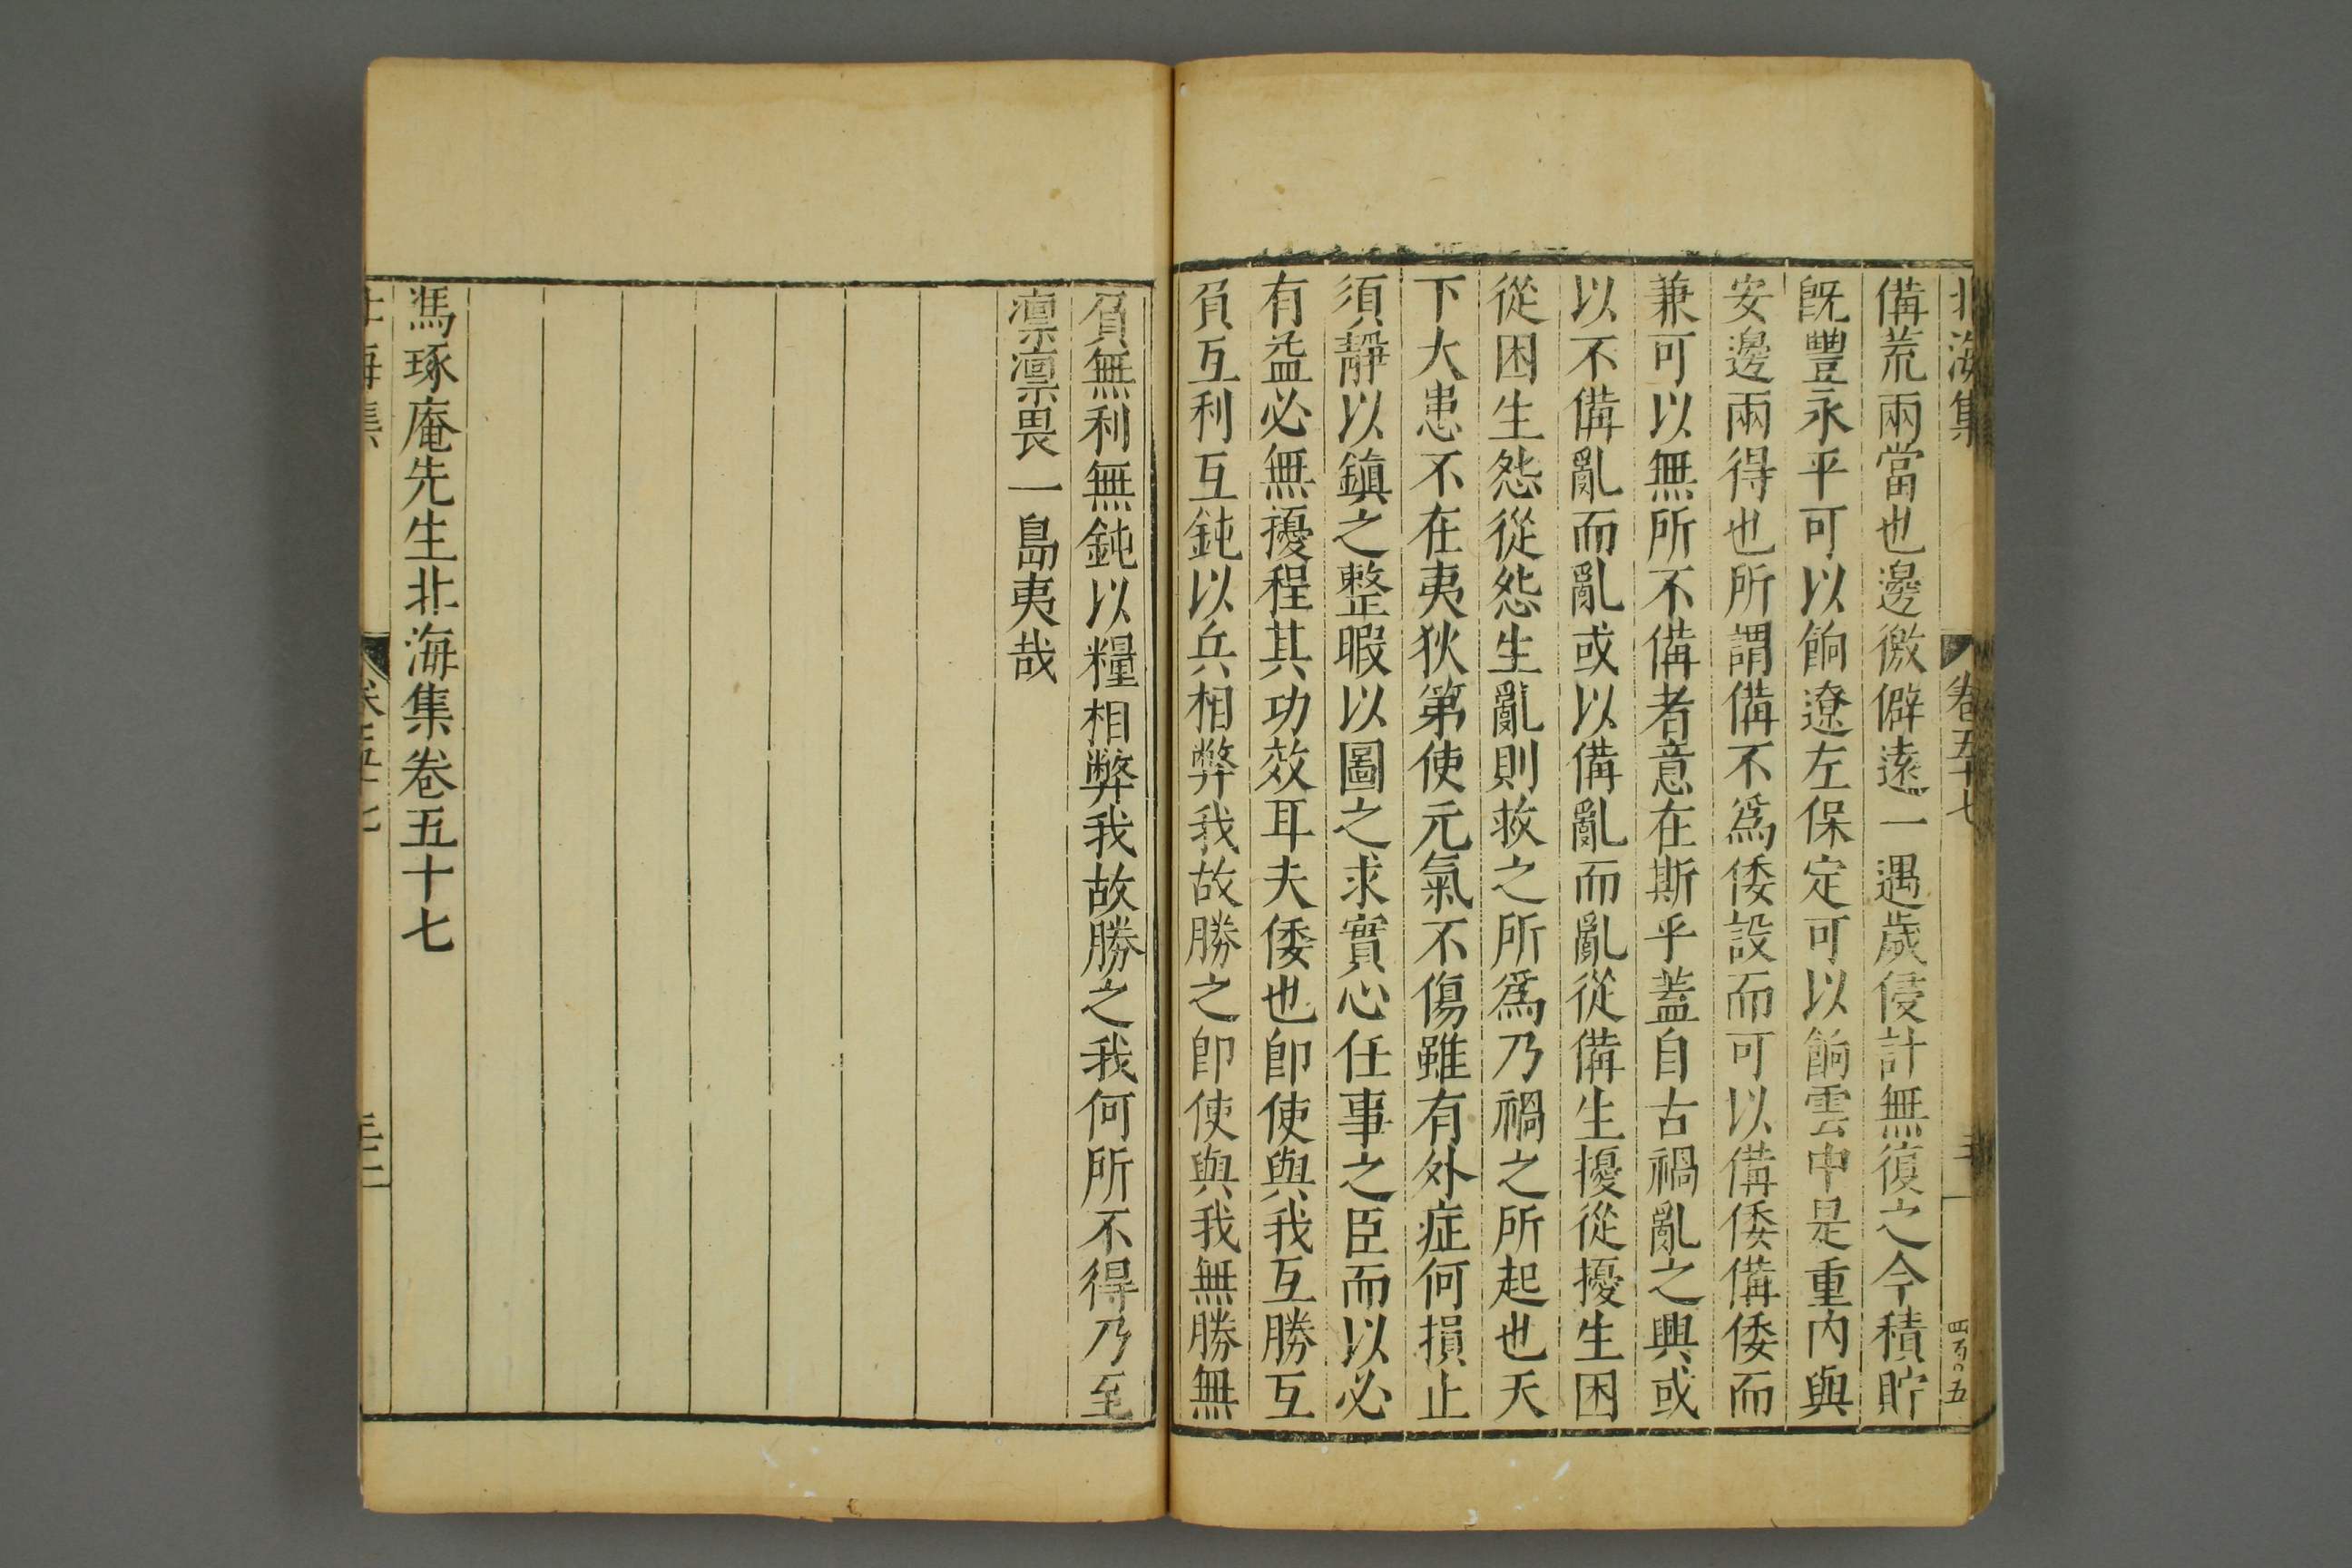 北海集 卷五十七 四百〇五
備荒兩當也邊徼僻遠一遇歲侵計無復之今積貯
既豐永平可以餉遼左保定可以餉雲中是重內與
安邊兩得也所謂備不爲倭設而可以備倭備倭而
兼可以無所不備者意在斯乎蓋自古禍亂之興或
以不備亂而亂或以備亂而亂從備生擾從擾生困
從困生怨從怨生亂則救之所爲乃禍之所起也天
下大患不在夷狄第使元氣不傷雖有外症何損止
須靜以鎮之整暇以圖之求實心任事之臣而以必
有益必無擾程其功效耳夫倭也卽使與我互勝互
負互利互鈍以兵相弊我故勝之卽使與我無勝無
負無利無鈍以糧相弊我故勝之我何所不得乃至
凛凛畏一島夷哉
馮琢庵先生北海集卷五十七
北海集 卷五十七